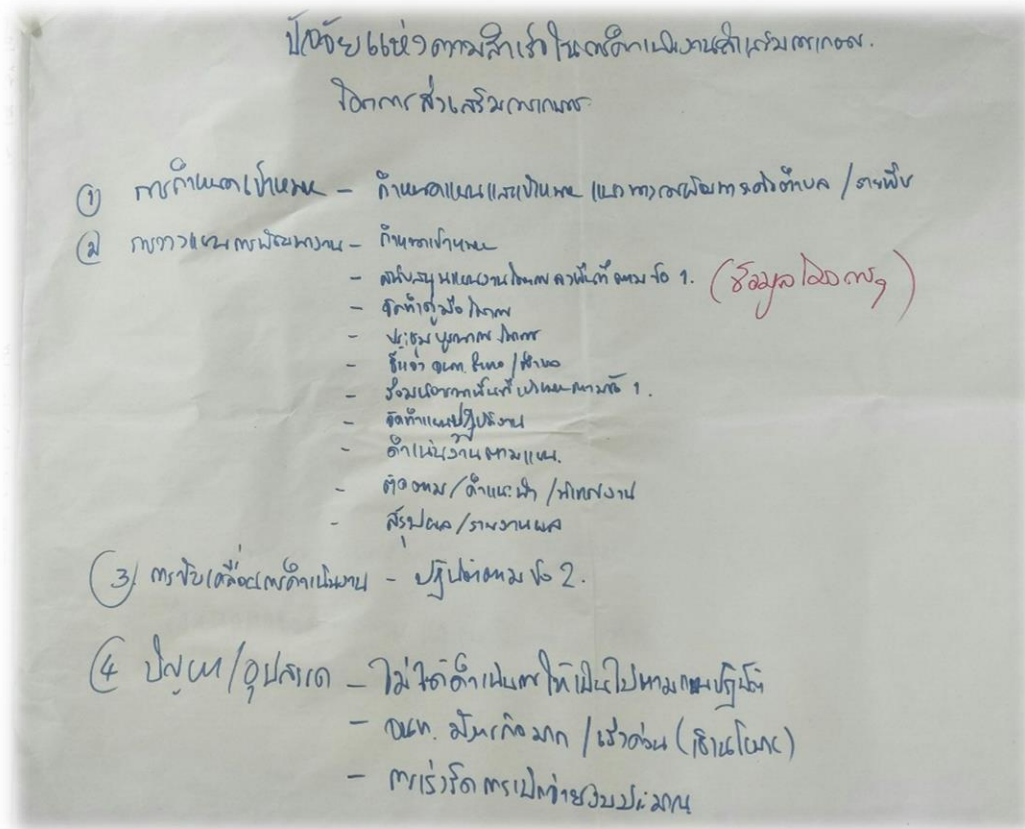 ปัจจัยแห่งความสำเร็จในการดำเนินงานส่งเสริมการเกษตร.
โครงการส่งเสริมการเกษตร
① การกำหนดเป้าหมาย - กำหนดแผนและเป้าหมาย แนวทางการพัฒนาระดับตำบล / รายพืช
② การวางแผนการพัฒนางาน - กำหนดเป้าหมาย
- สนับสนุนแผนงานโครงการลงพื้นที่ตามข้อ 1. (ข้อมูลโครงการฯ)
- จัดทำคู่มือโครงการ
- ประชุมบูรณาการโครงการ
- ชี้แจง จนท. อำเภอ / ตำบล
- พื้นที่เป้าหมายตามข้อ 1.
- จัดทำแผนปฏิบัติงาน
- ดำเนินงานตามแผน.
- ติดตาม / คำแนะนำ / นิเทศงาน
- สรุปผล / รายงานผล
③ การขับเคลื่อนการดำเนินงาน - ปฏิบัติตามข้อ 2.
④ ปัญหา / อุปสรรค - ไม่ได้ดำเนินการให้เป็นไปตามแผนปฏิบัติ
- จนท. มีภารกิจมาก / เร่งด่วน (เชิงนโยบาย)
- การเร่งรัดการเบิกจ่ายงบประมาณ